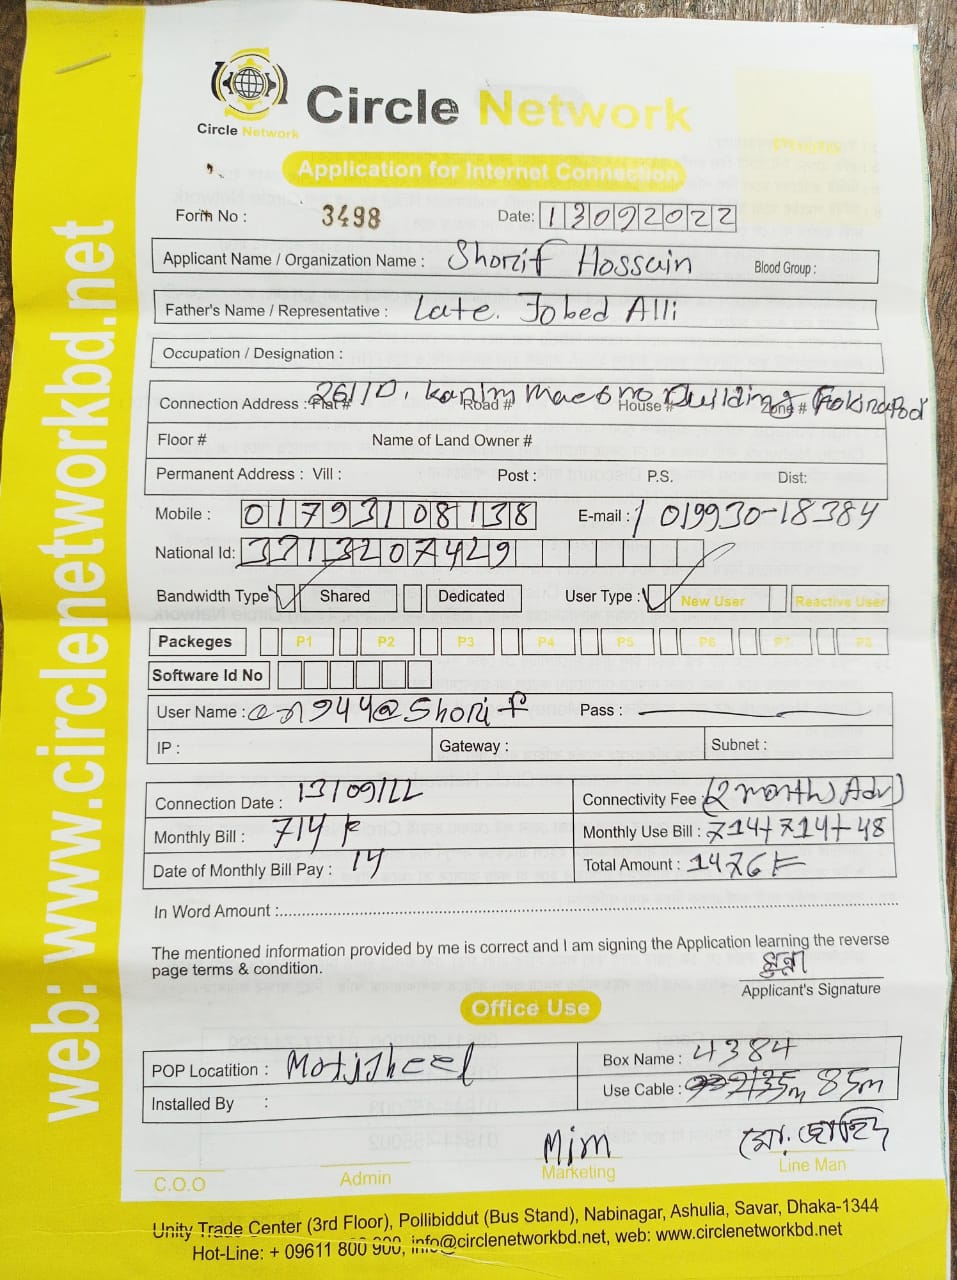 Circle Network
Circle Network
Application for Internet Connection
Form No : 3498 Date: 13092022
Applicant Name / Organization Name : Shorif Hossain Blood Group :
Father's Name / Representative : Late. Jobed Alli
Occupation / Designation :
Connection Address : Flat # 26/1D, Karim Road # House # Building Zone #
Floor # Name of Land Owner #
Permanent Address : Vill : Post : P.S. Dist:
Mobile : 01793108138 E-mail : / 019930-18384
National Id: 3713207429
Bandwidth Type Shared Dedicated User Type : New User Reactive User
Packeges P1 P2 P3 P4 P5 P6 P7 P8
Software Id No
User Name : @Shorif Pass :
IP : Gateway : Subnet :
Connection Date : 13/09/22 Connectivity Fee (2 month Adv)
Monthly Bill : 714 Monthly Use Bill : 714+714+48
Date of Monthly Bill Pay : 14 Total Amount : 1476
In Word Amount :
The mentioned information provided by me is correct and I am signing the Application learning the reverse
page terms & condition.
Applicant's Signature
Office Use
POP Locatition : Motijheel Box Name : 4384
Installed By : Use Cable : 85m
Mim মো. জাহিদ
C.O.O Admin Marketing Line Man
Unity Trade Center (3rd Floor), Pollibiddut (Bus Stand), Nabinagar, Ashulia, Savar, Dhaka-1344
Hot-Line: + 09611 800 900, info@circlenetworkbd.net, web: www.circlenetworkbd.net
web: www.circlenetworkbd.net